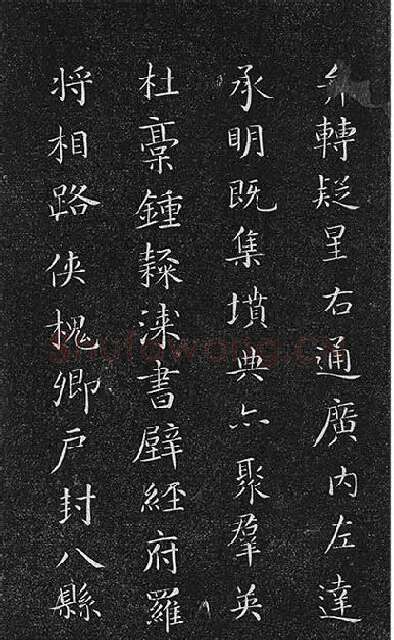 弁轉疑星右通廣内左達
承明既集墳典亦聚群英
杜稾鍾隸漆書壁經府羅
將相路俠槐卿戶封八縣
shufawang.cn